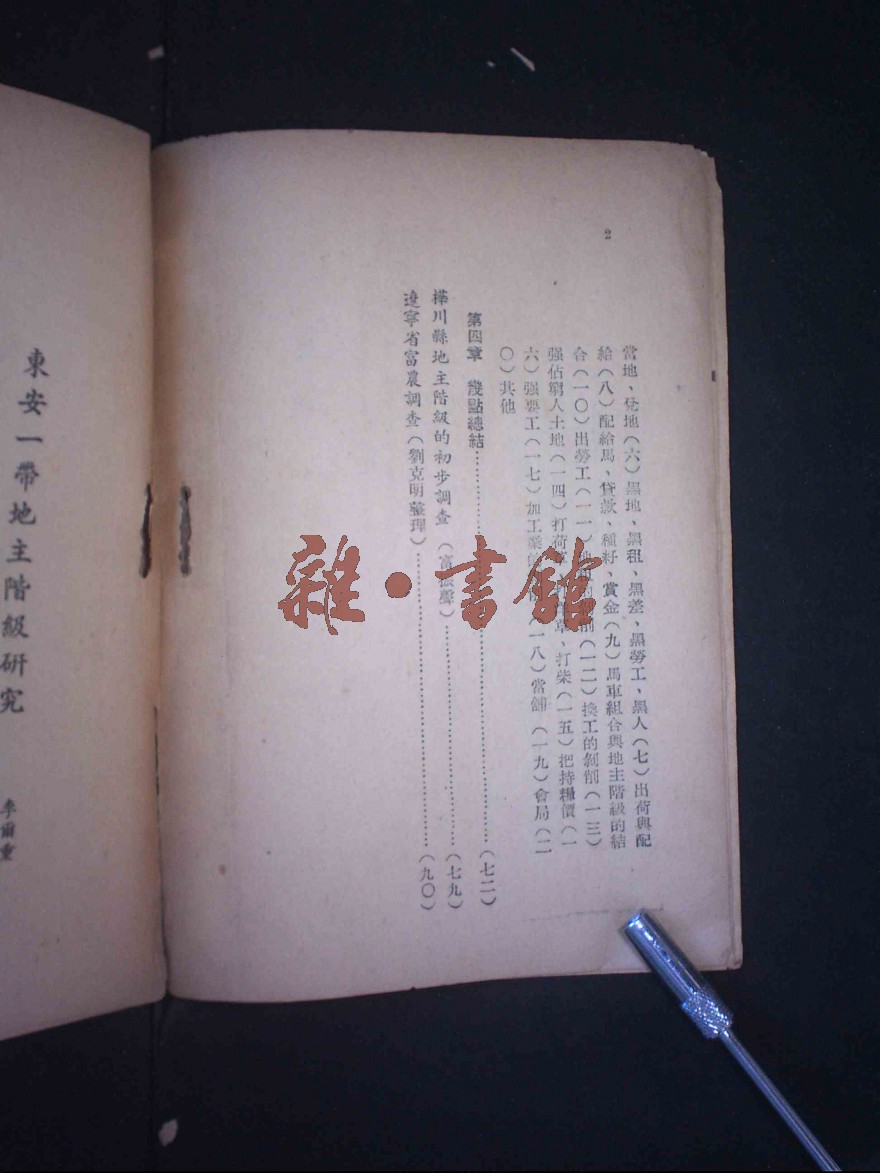 2
當地、兌地(六)黑地、黑租、黑差、黑勞工、黑人(七)出荷與配
給(八)配給馬、貸款、種籽、賞金(九)馬車組合與地主階級的結
合(一〇)出勞工(一一)剝削(一二)換工的剝削(一三)
強佔窮人土地(一四)打荷草、草、打柴(一五)把持糧價(一
六)強要工(一七)加工業(一八)當舖(一九)會局(二
〇)其他
第四章 幾點總結………(七二)
樺川縣地主階級的初步調查(富振聲)………(七九)
遼寧省富農調查(劉克明整理)………(九〇)
東安一帶地主階級研究
李爾重
雜·書館